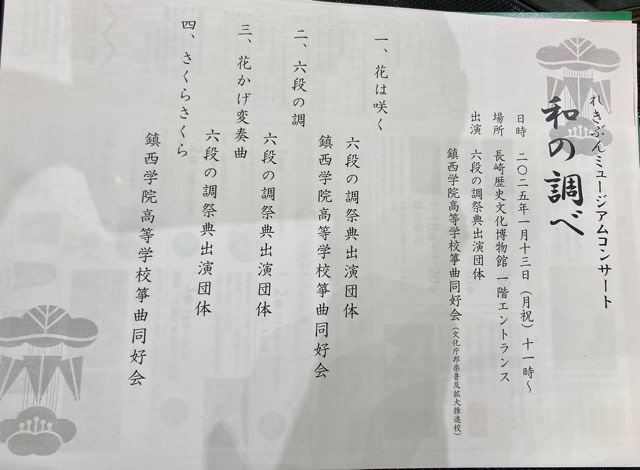 れきぶんミュージアムコンサート
和の調べ
日時 二〇二五年一月十三日（月祝）十一時～
場所 長崎歴史文化博物館 一階エントランス
出演 六段の調祭典出演団体
鎮西学院高等学校箏曲同好会（文化庁邦楽普及拡大推進校）
一、花は咲く
六段の調祭典出演団体
鎮西学院高等学校箏曲同好会
二、六段の調
六段の調祭典出演団体
三、花かげ変奏曲
六段の調祭典出演団体
四、さくらさくら
鎮西学院高等学校箏曲同好会